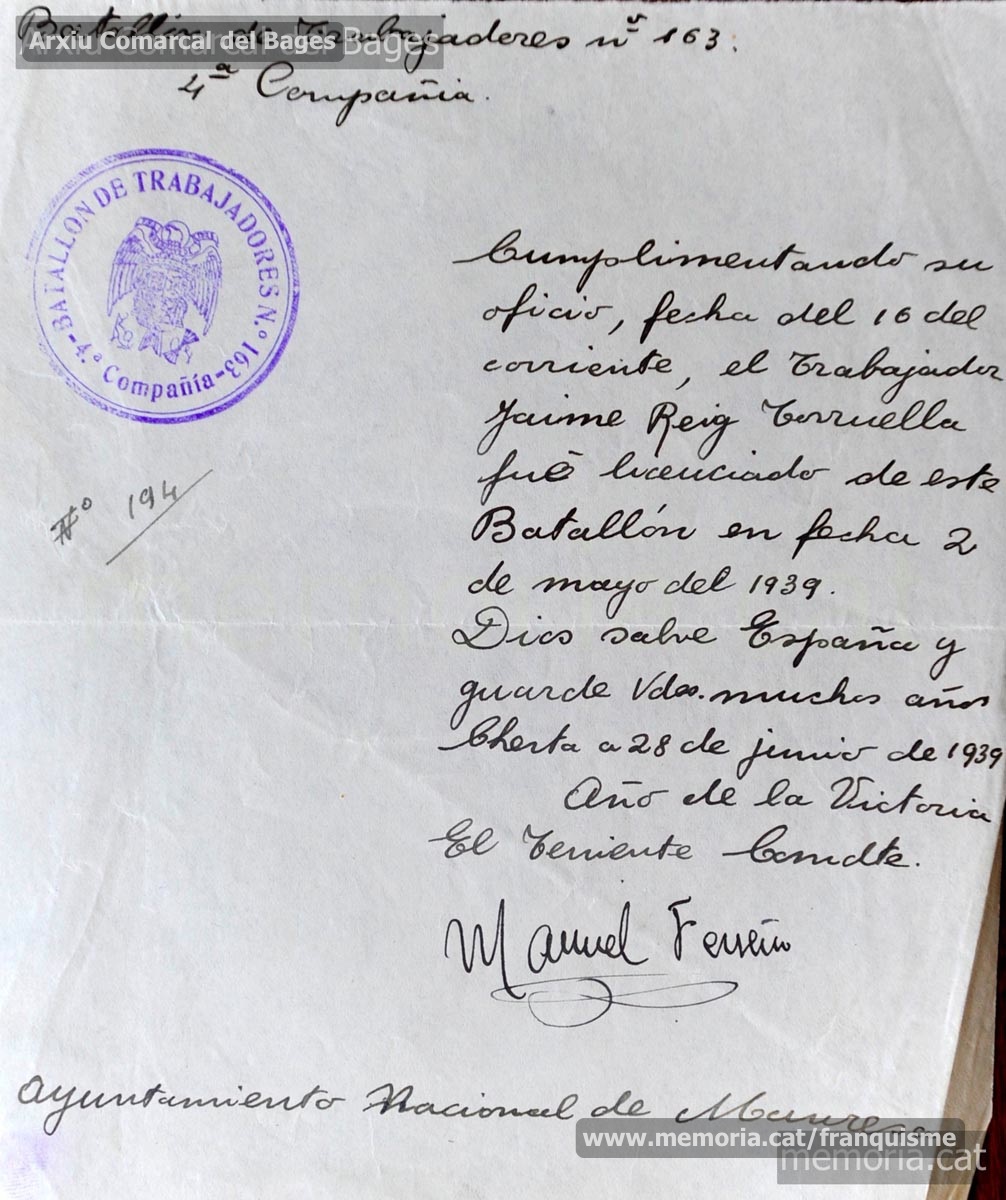 Batallón de Trabajadores nº 163.
Arxiu Comarcal del Bages
Bages
4ª Compañia.
BATALLON DE TRABAJADORES N.º 163
-4.ª Compañía-
Nº 194
Cumplimentando su
oficio, fecha del 16 del
corriente, el Trabajador
Jaime Reig Torruella
fué licenciado de este
Batallón en fecha 2
de mayo del 1939.
Dios salve España y
guarde Vdes. muchos años
Cherta a 28 de junio de 1939
Año de la Victoria
El Teniente Comdte.
Manuel
Ayuntamiento Nacional de Manresa
www.memoria.cat/franquisme
memoria.cat